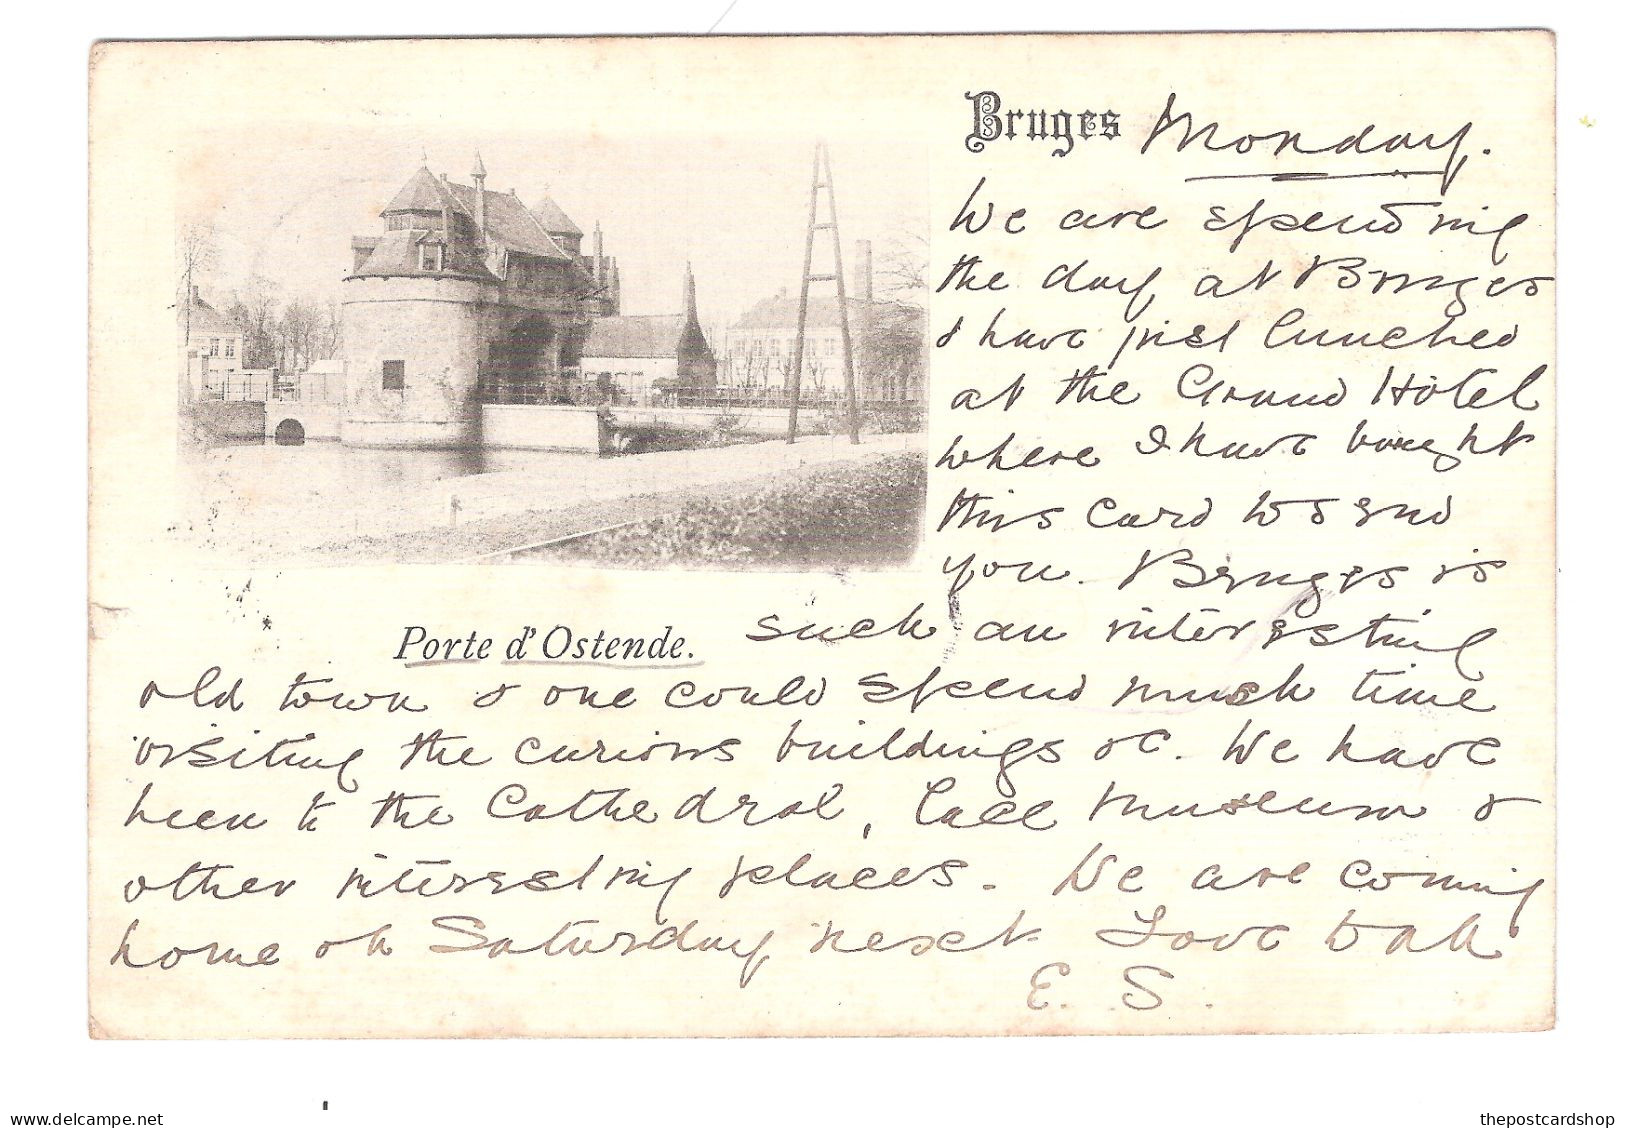 Bruges Monday.
We are spending
the day at Bruges
& have just lunched
at the Grand Hôtel
where I have bought
this card to send
you. Bruges is
Porte d'Ostende. such an interesting
old town & one could spend much time
visiting the curious buildings &c. We have
been to the Cathedral, lace Museum &
other interesting places. We are coming
home on Saturday next. Love to all
E. S.
www.delcampe.net
thepostcardshop